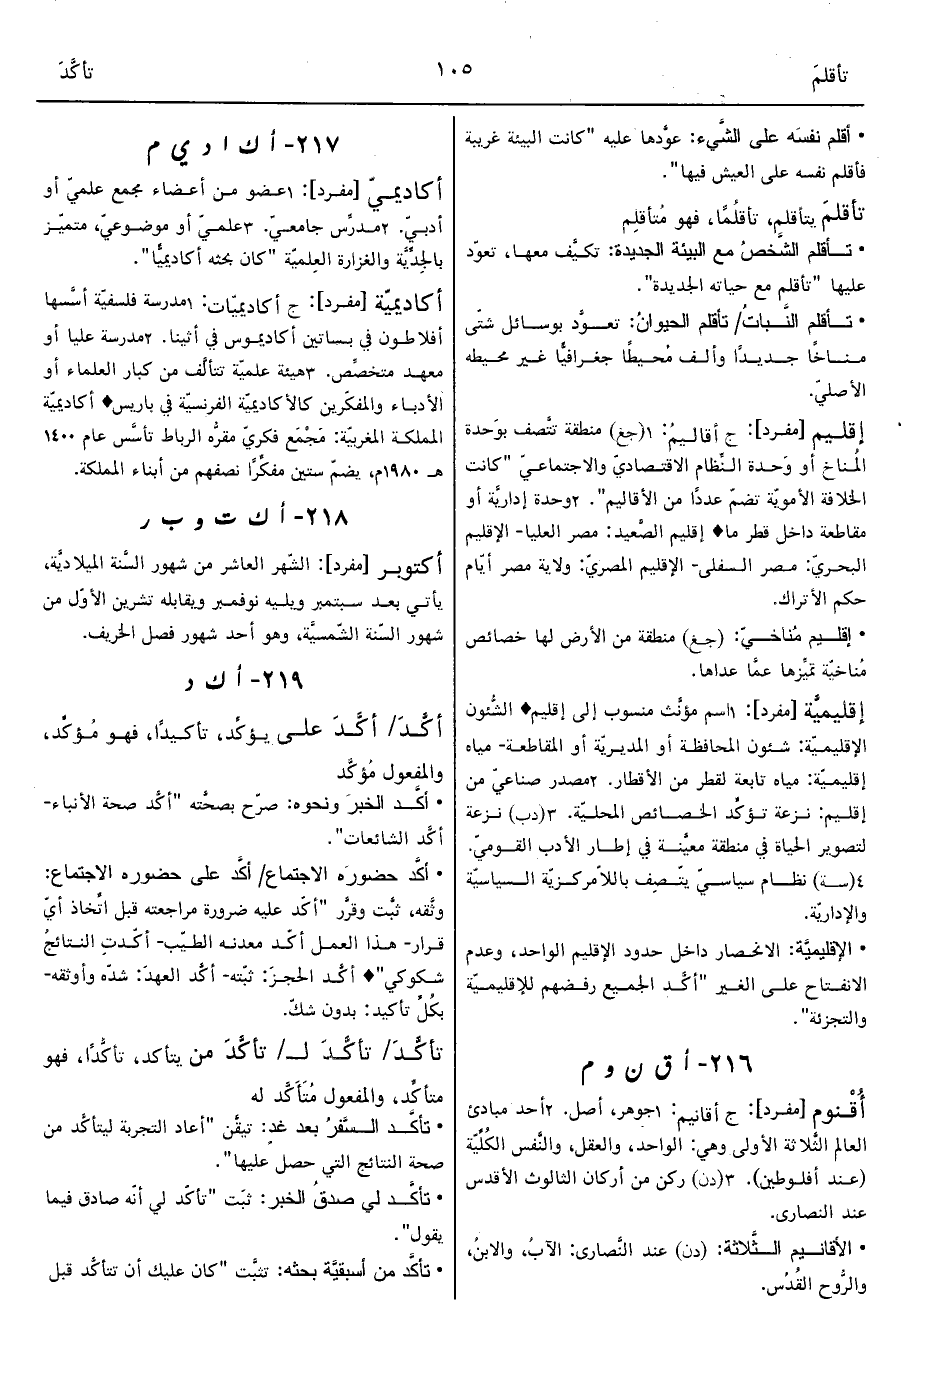 تأقلمَ
١٠٥
تأكَّدَ
• أقلم نفسَه على الشَّيء: عوَّدها عليه "كانت البيئة غريبة
فأقلم نفسه على العيش فيها".
تأقلمَ يتأقلم، تأقلُمًا، فهو مُتأقلِم
• تـأقلم الشَّخصُ مع البيئة الجديدة: تكيَّف معها، تعوّد
عليها "تأقلم مع حياته الجديدة".
• تـأقلم النَّباتُ/ تأقلم الحيوانُ: تعوَّد بوسائل شتّى
مناخًا جديدًا وألف مُحيطًا جغرافيًّا غير محيطه
الأصليّ.
إقليم [مفرد]: ج أقاليمُ: ١(جغ) منطقة تتّصف بوَحدة
المُناخ أو وَحدة النِّظام الاقتصاديّ والاجتماعيّ "كانت
الخلافة الأمويّة تضمّ عددًا من الأقاليم". ٢وحدة إداريَّة أو
مقاطعة داخل قطر ما♦ إقليم الصَّعيد: مصر العليا- الإقليم
البحريّ: مصر السفلى- الإقليم المصريّ: ولاية مصر أيّام
حكم الأتراك.
• إقليم مُناخيّ: (جغ) منطقة من الأرض لها خصائص
مُناخيّة تميِّزها عمَّا عداها.
إقليميَّة [مفرد]: ١اسم مؤنَّث منسوب إلى إقليم♦ الشُّئون
الإقليميّة: شئون المحافظة أو المديريّة أو المقاطعة- مياه
إقليميّة: مياه تابعة لقطر من الأقطار. ٢مصدر صناعيّ من
إقليم: نزعة تؤكّد الخصائص المحليّة. ٣(دب) نزعة
لتصوير الحياة في منطقة معيَّنة في إطار الأدب القوميّ.
٤(سة) نظام سياسيّ يتّصف باللاّمركزيّة السياسيّة
والإداريّة.
• الإقليميَّة: الانحصار داخل حدود الإقليم الواحد، وعدم
الانفتاح على الغير "أكَّد الجميع رفضهم للإقليميّة
والتجزئة".
٢١٦- أ ق ن و م
أُقْنوم [مفرد]: ج أقانيم: ١جوهر، أصل. ٢أحد مبادئ
العالم الثَّلاثة الأولى وهي: الواحد، والعقل، والنَّفس الكُلِّيّة
(عند أفلوطين). ٣(دن) ركن من أركان الثالوث الأقدس
عند النصارى.
• الأقانيم الثَّلاثة: (دن) عند النَّصارى: الآبُ، والابنُ،
والرُّوح القُدُس.
٢١٧- أ ك ا د ي م
أكاديميّ [مفرد]: ١عضو من أعضاء مجمع علميّ أو
أدبيّ. ٢مدرَّس جامعيّ. ٣علميّ أو موضوعيّ، متميِّز
بالجدِّيَّة والغزارة العِلميّة "كان بحثه أكاديميًّا".
أكاديميّة [مفرد]: ج أكاديميّات: ١مدرسة فلسفيّة أسَّسها
أفلاطون في بساتين أكاديموس في أثينا. ٢مدرسة عليا أو
معهد متخصِّص. ٣هيئة علميّة تتألَّف من كبار العلماء أو
الأدباء والمفكّرين كالأكاديميّة الفرنسيّة في باريس♦ أكاديميّة
المملكة المغربيّة: مَجْمَع فكريّ مقرُّه الرباط تأسَّس عام ١٤٠٠
هـ ١٩٨٠م، يضمّ ستين مفكِّرًا نصفهم من أبناء المملكة.
٢١٨- أ ك ت و ب ر
أكتوبر [مفرد]: الشّهر العاشر من شهور السَّنة الميلاديَّة،
يأتي بعد سبتمبر ويليه نوفمبر ويقابله تشرين الأوّل من
شهور السّنة الشّمسيَّة، وهو أحد شهور فصل الخريف.
٢١٩- أ ك د
أكَّدَ/ أكَّدَ على يؤكّد، تأكيدًا، فهو مُؤكِّد،
والمفعول مُؤكَّد
• أكَّد الخبرَ ونحوه: صرّح بصحَّته "أكّد صحة الأنباء-
أكّد الشائعات".
• أكَّد حضورَه الاجتماع/ أكَّد على حضوره الاجتماع:
وثَّقه، ثبَّت وقرَّر "أكّد عليه ضرورة مراجعته قبل اتِّخاذ أيّ
قرار- هذا العمل أكّد معدنه الطيّب- أكّدتِ النتائجُ
شكوكي"♦ أكّد الحجزَ: ثبّته- أكّد العهدَ: شدّه وأوثقه-
بكُلِّ تأكيد: بدون شكّ.
تأكَّدَ/ تأكَّدَ لـ/ تأكَّدَ من يتأكد، تأكُّدًا، فهو
متأكِّد، والمفعول مُتَأَكَّد له
• تأكَّد السَّفرُ بعد غدٍ: تيقّن "أعاد التجربة ليتأكّد من
صحة النتائج التي حصل عليها".
• تأكَّد لي صدقُ الخبر: ثبّت "تأكّد لي أنّه صادق فيما
يقول".
• تأكَّد من أسبقيَّة بحثه: تثبَّت "كان عليك أن تتأكّد قبل